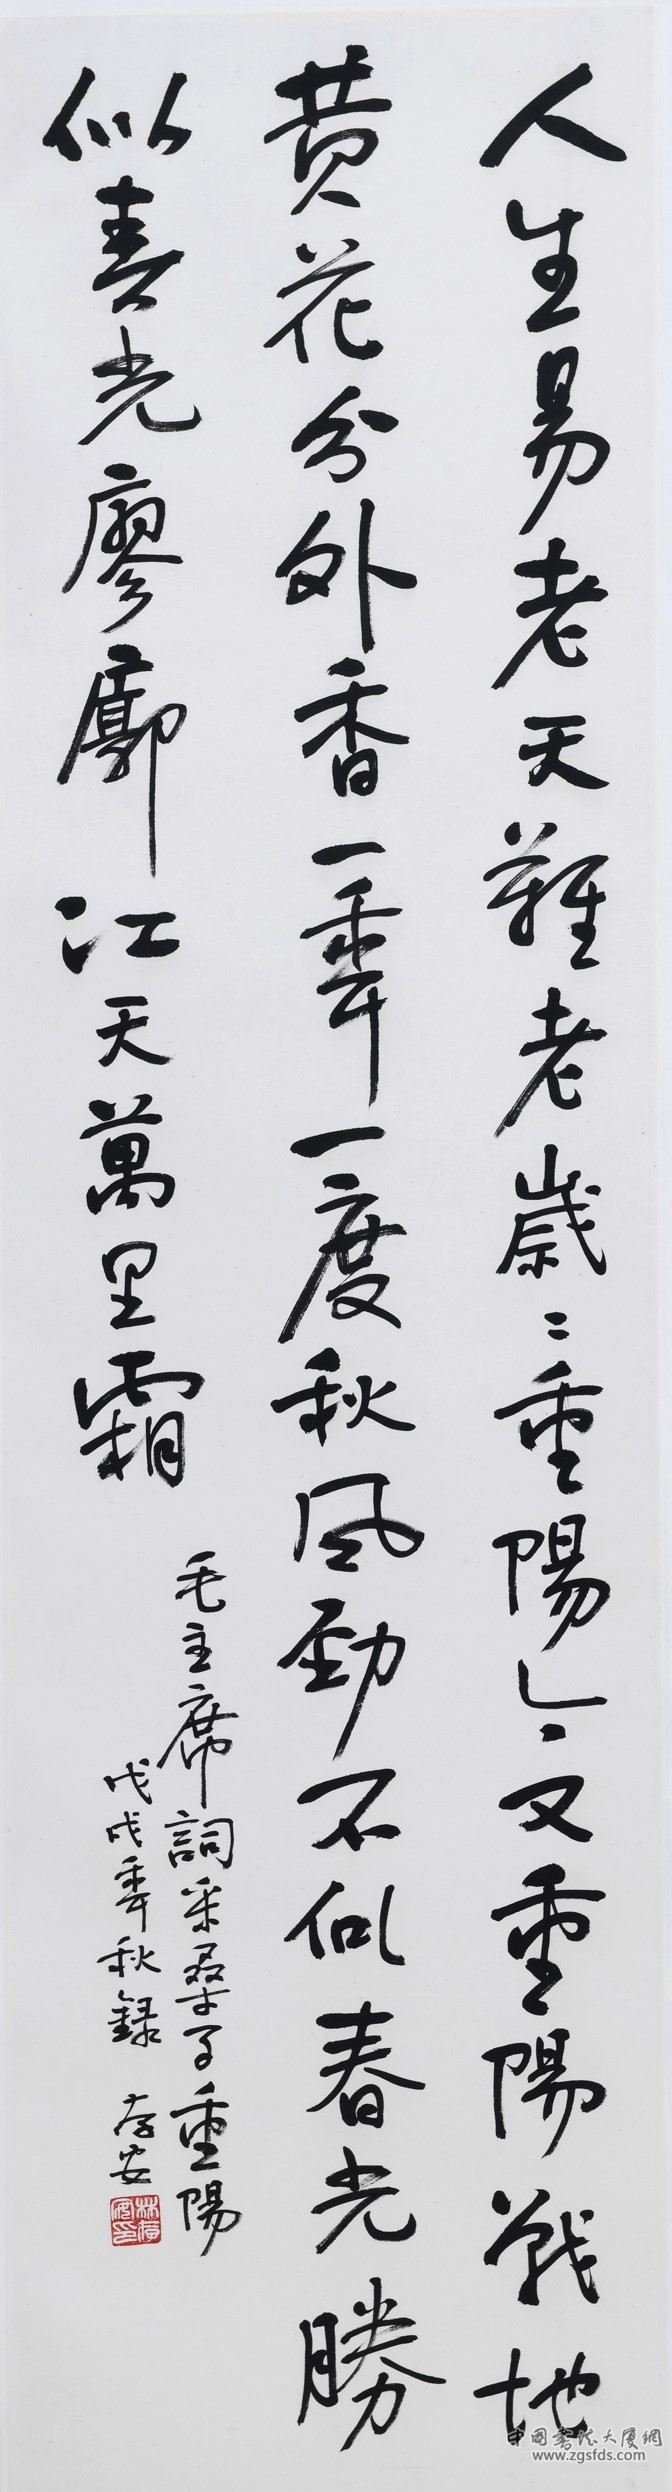 人生易老天難老歲〻重陽今又重陽戰地
黄花分外香一年一度秋風勁不似春光勝
似春光寥廓江天萬里霜
毛主席詞采桑子重陽
戊戌年秋錄 存安
林存安印
中國書法大廈網
www.zgsfds.com